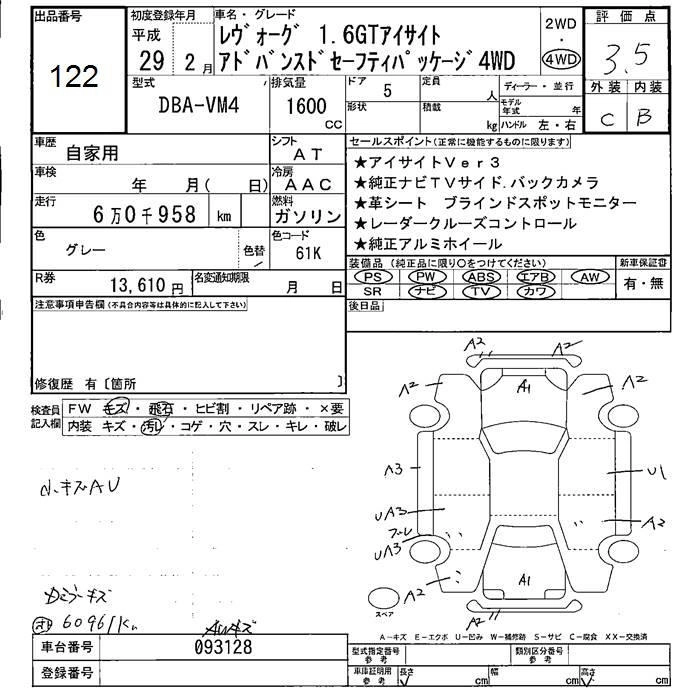 出品番号
122
初度登録年月
平成
29 2月
車名・グレード
レヴォーグ 1.6GTアイサイト
アドバンスドセーフティパッケージ4WD
2WD
・
4WD
評価点
3.5
外装 内装
C B
型式
DBA-VM4
排気量
1600
CC
ドア 5
形状
定員
人
積載
kg
ディーラー・並行
モデル年式 年
ハンドル 左・右
車歴
自家用
シフト
AT
車検
年 月( 日)
冷房
AAC
走行
6万0千958 km
燃料
ガソリン
色
グレー
色替
色コード
61K
R券
13,610円
名変通知期限
月 日
セールスポイント(正常に機能するものに限ります)
★アイサイトVer3
★純正ナビTVサイド.バックカメラ
★革シート ブラインドスポットモニター
★レーダークルーズコントロール
★純正アルミホイール
装備品(純正品に限り○をつけてください)
PS PW ABS エアB AW
SR ナビ TV カワ
新車保証書
有・無
後日品
注意事項申告欄(不具合内容等は具体的に記入して下さい)
修復歴 有〔箇所 〕
検査員記入欄
FW キズ・飛石・ヒビ割・リペア跡・×要
内装 キズ・汚レ・コゲ・穴・スレ・キレ・破レ
小キズAU
60961Km
AWキズ
A2
A2
A2
A1
A2
A3
U1
UA3
UA3
A2
A2
A1
A2
A2
スペア
A-キズ E-エクボ U-凹み W-補修跡 S-サビ C-腐食 XX-交換済
車台番号
093128
登録番号
型式指定番号
参考
類別区分番号
参考
車庫証明用
参考
長さ
cm
幅
cm
高さ
cm